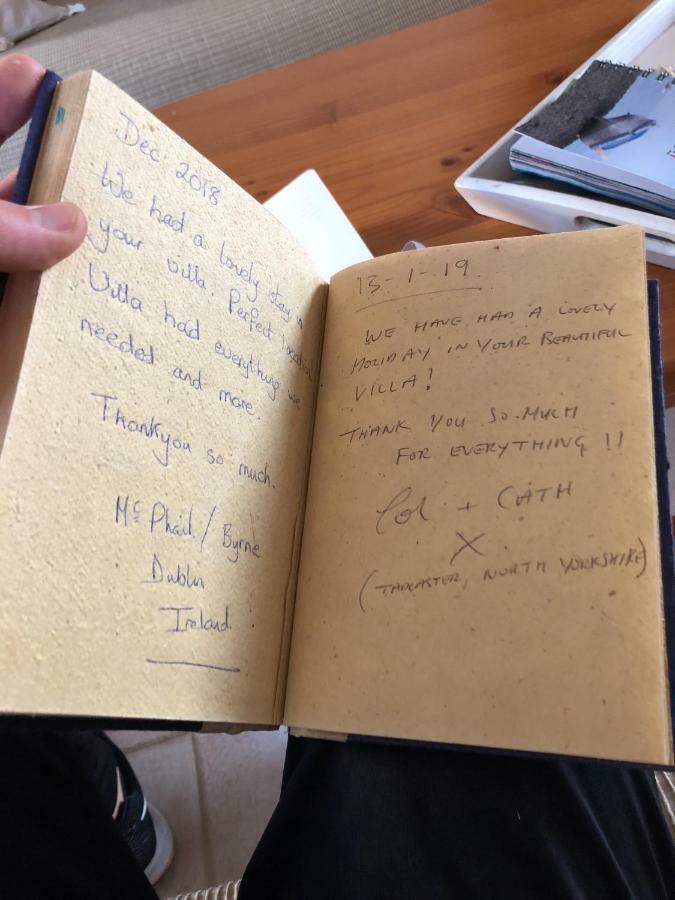 Dec. 2018
We had a lovely stay in
your villa. Perfect location.
Villa had everything we
needed and more.
Thankyou so much.
Mc Phail / Byrne
Dublin
Ireland.
13-1-19.
WE HAVE HAD A LOVELY
HOLIDAY IN YOUR BEAUTIFUL
VILLA!
THANK YOU SO MUCH
FOR EVERYTHING !!
Col + CATH
X
(TADCASTER, NORTH YORKSHIRE)